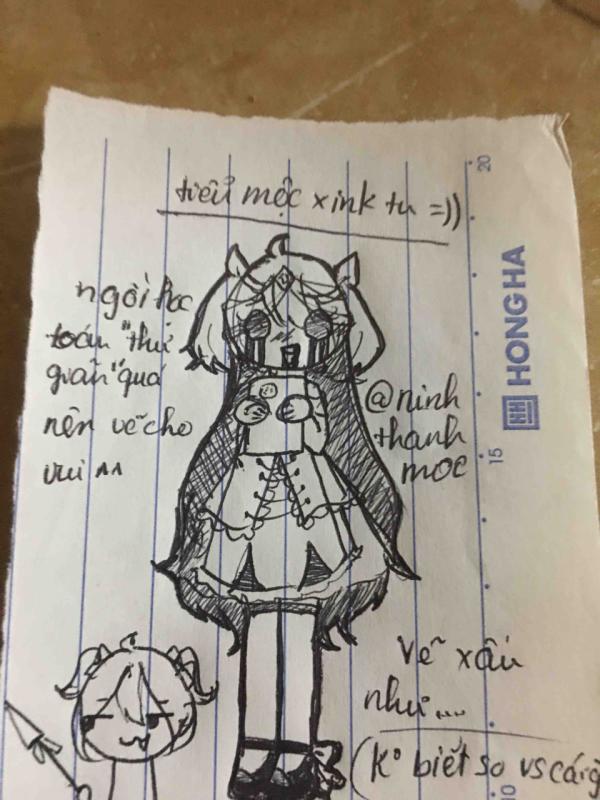 tiểu mộc xink tu =))
ngồi học
toán "thư
giãn" quá
nên vẽ cho
vui ^^
@ninh
thanh
moc
vẽ xấu
như....
(K° biết so vs cá
20
HONG HA
HH
15
10